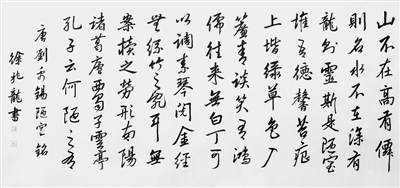 山不在高有僊
則名水不在深有
龍則靈斯是陋室
惟吾德馨苔痕
上堦綠草色入
簾青談笑有鴻
儒往來無白丁可
以調素琴閱金經
無絲竹之亂耳無
案牘之勞形南陽
諸葛廬西蜀子雲亭
孔子云何陋之有
唐劉禹錫陋室銘
徐兆龍書